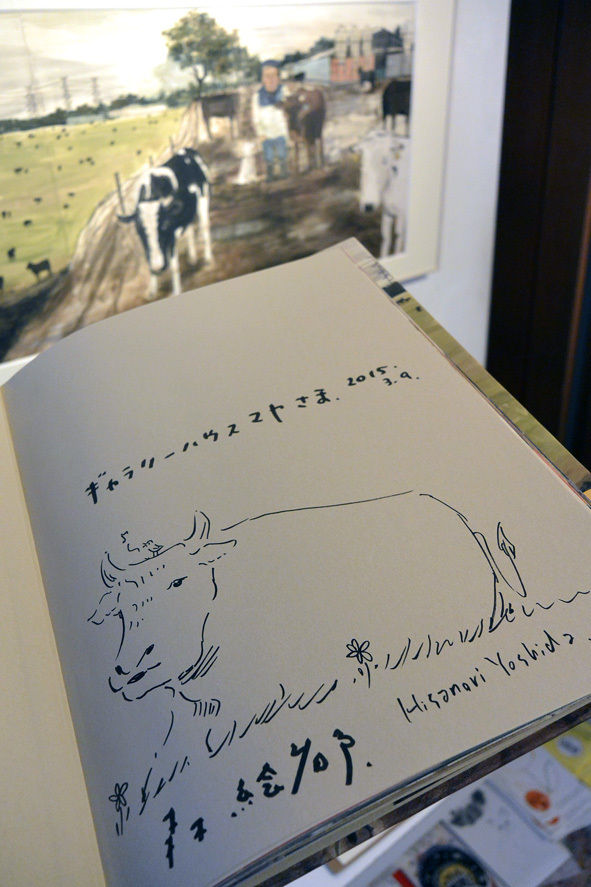 ギャラリーハウスマヤ さま. 2015.
3.9.
Hisanori Yoshida.
森 絵都.